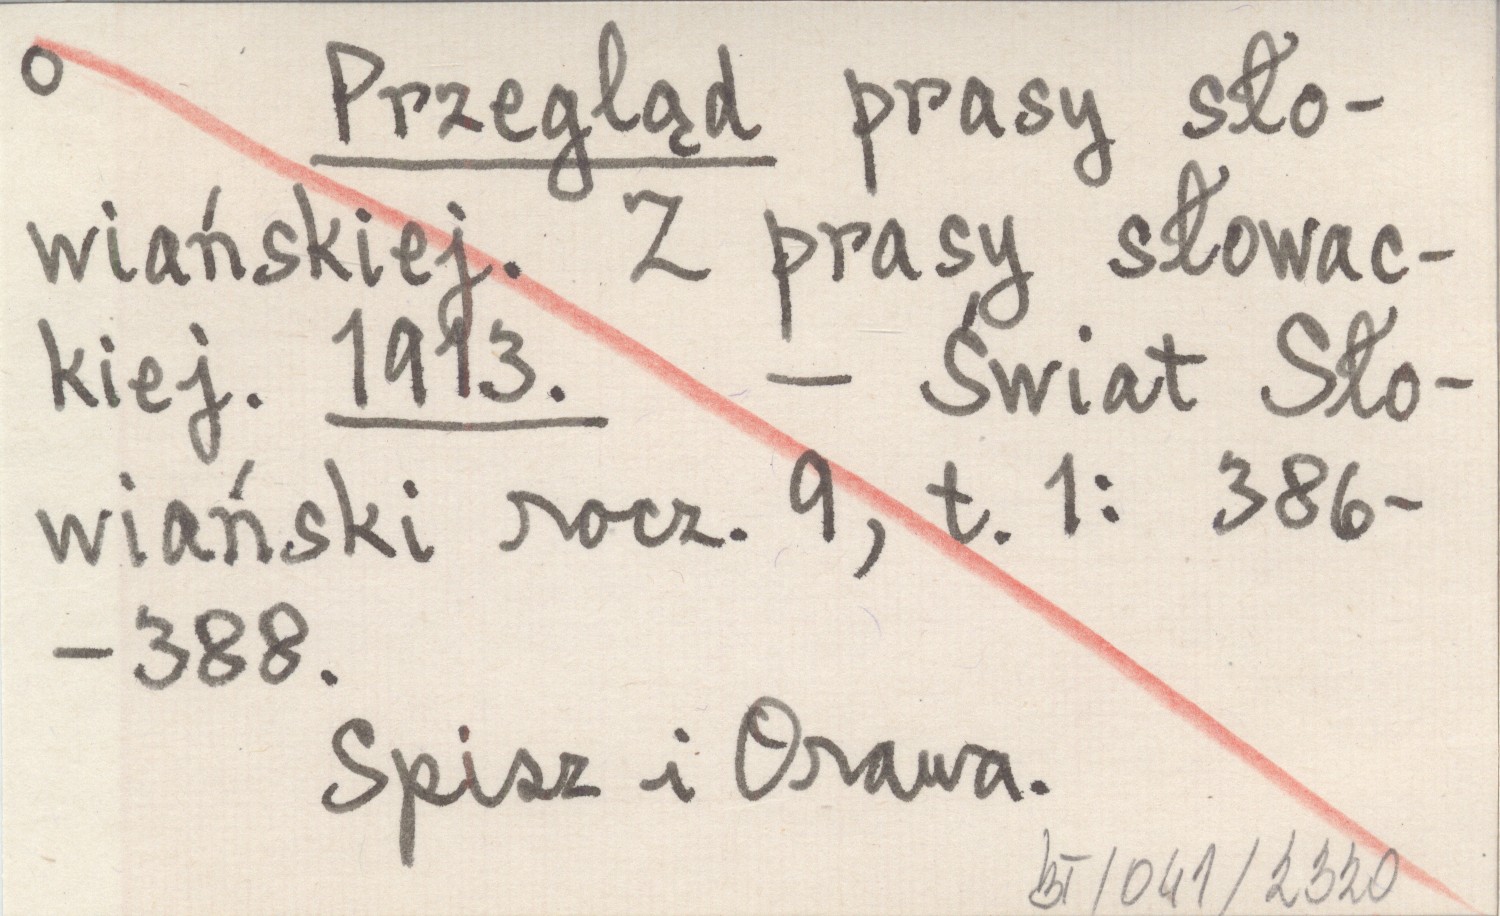 o Przegląd prasy sło-
wiańskiej. Z prasy słowac-
kiej. 1913. – Świat Sło-
wiański rocz. 9, t. 1: 386-
-388.
Spisz i Orawa.
BT/041/2320